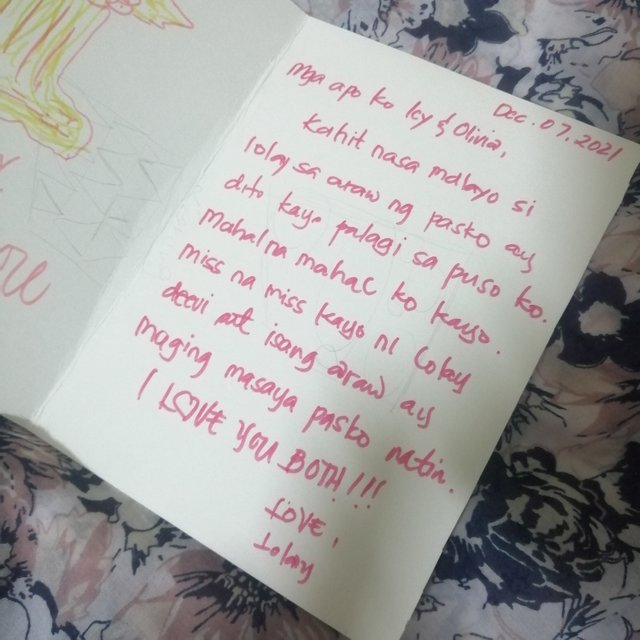 Dec. 07, 2021
Mga apo ko Icy & Olivia,
Kahit nasa malayo si
lolay sa araw ng pasko ay
dito kayo palagi sa puso ko.
mahal na mahal ko kayo.
miss na miss kayo ni lolay
deevi at isang araw ay
maging masaya pasko natin.
I LOVE YOU BOTH!!!
LOVE,
Lolay